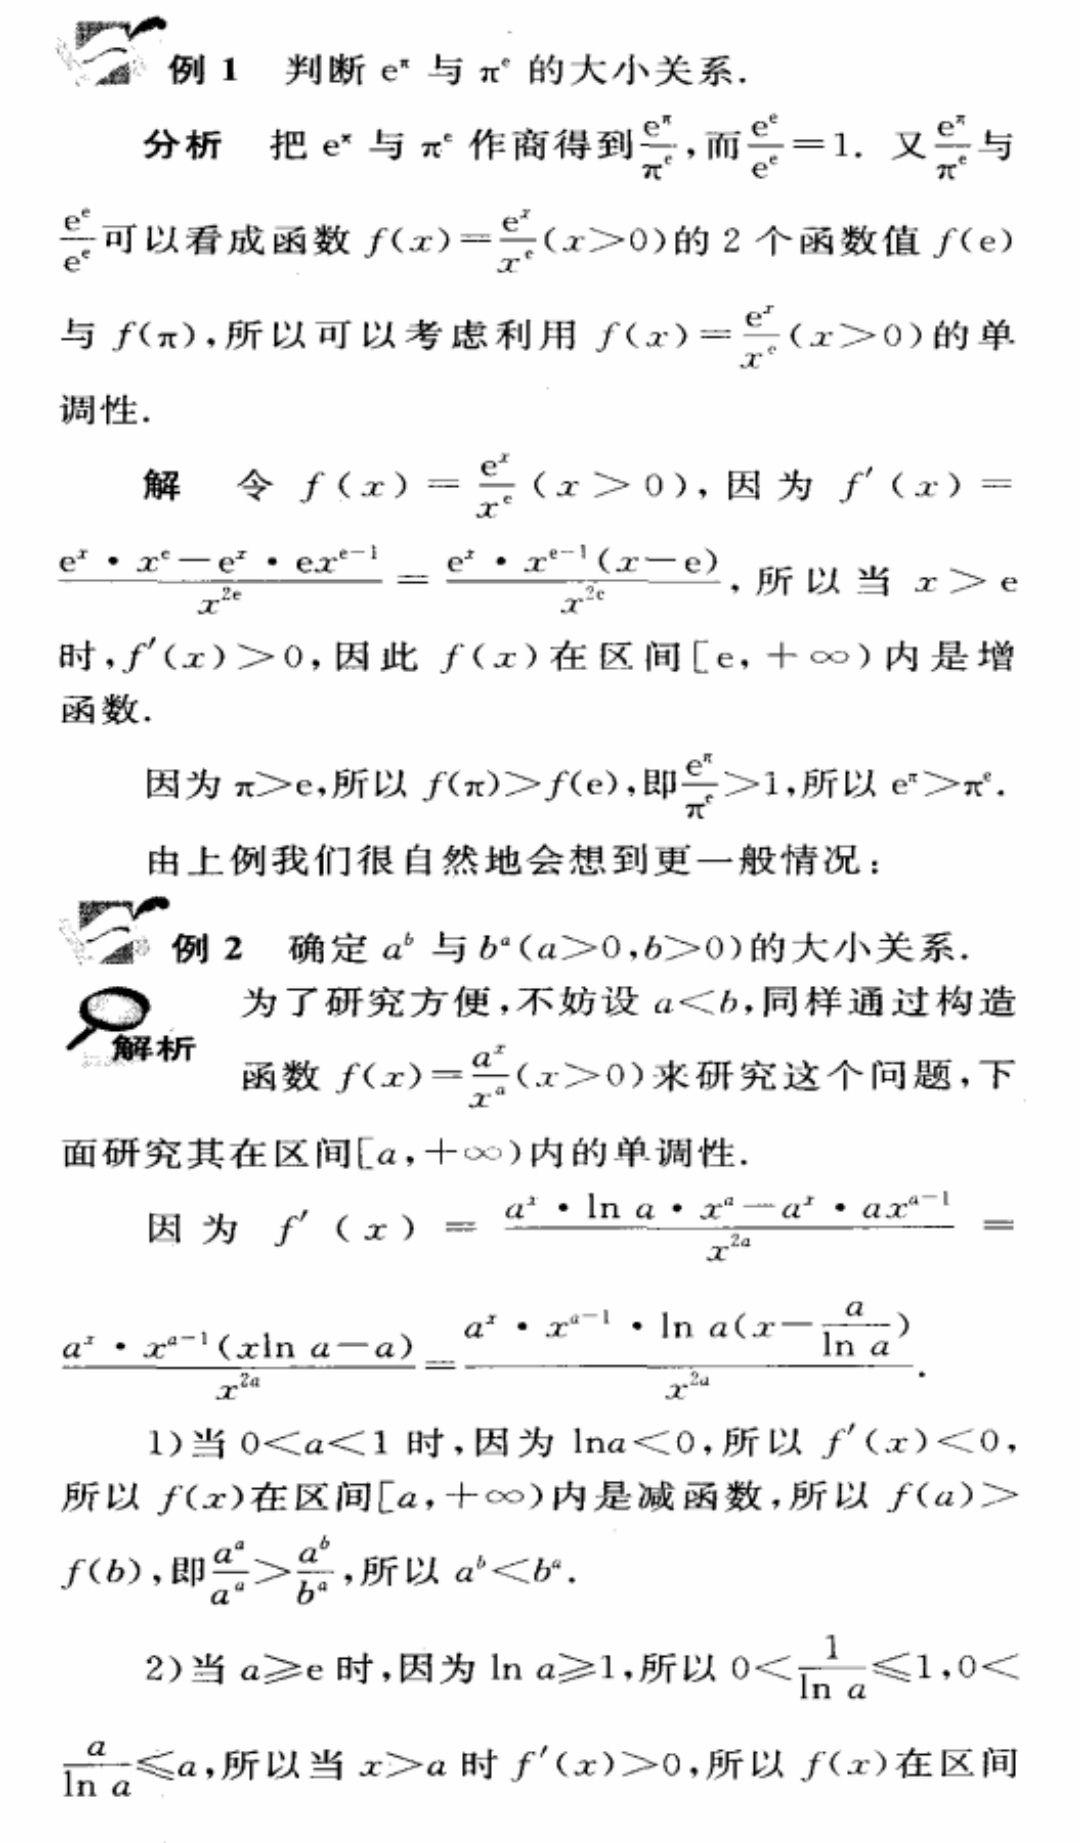 例 1 判断 e^π 与 π^e 的大小关系.
分析 把 e^π 与 π^e 作商得到 e^π/π^e,而 e^e/e^e=1. 又 e^π/π^e 与
e^e/e^e 可以看成函数 f(x)=e^x/x^e(x>0)的 2 个函数值 f(e)
与 f(π),所以可以考虑利用 f(x)=e^x/x^e(x>0)的单
调性.
解 令 f(x)=e^x/x^e(x>0),因为 f′(x)=
(e^x·x^e-e^x·ex^(e-1))/x^(2e)=(e^x·x^(e-1)(x-e))/x^(2e),所以当 x>e
时,f′(x)>0,因此 f(x)在区间[e,+∞)内是增
函数.
因为 π>e,所以 f(π)>f(e),即 e^π/π^e>1,所以 e^π>π^e.
由上例我们很自然地会想到更一般情况:
例 2 确定 a^b 与 b^a(a>0,b>0)的大小关系.
解析 为了研究方便,不妨设 a<b,同样通过构造
函数 f(x)=a^x/x^a(x>0)来研究这个问题,下
面研究其在区间[a,+∞)内的单调性.
因为 f′(x)=(a^x·ln a·x^a-a^x·ax^(a-1))/x^(2a)=
(a^x·x^(a-1)(xln a-a))/x^(2a)=(a^x·x^(a-1)·ln a(x-a/ln a))/x^(2a).
1)当 0<a<1 时,因为 lna<0,所以 f′(x)<0,
所以 f(x)在区间[a,+∞)内是减函数,所以 f(a)>
f(b),即 a^a/a^a>a^b/b^a,所以 a^b<b^a.
2)当 a≥e 时,因为 ln a≥1,所以 0<1/ln a≤1,0<
a/ln a≤a,所以当 x>a 时 f′(x)>0,所以 f(x)在区间